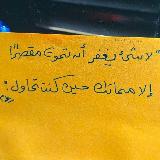 "لا شيء يغفر أن تموت مقصرًا
إلا مماتك حين كنت تحاول"